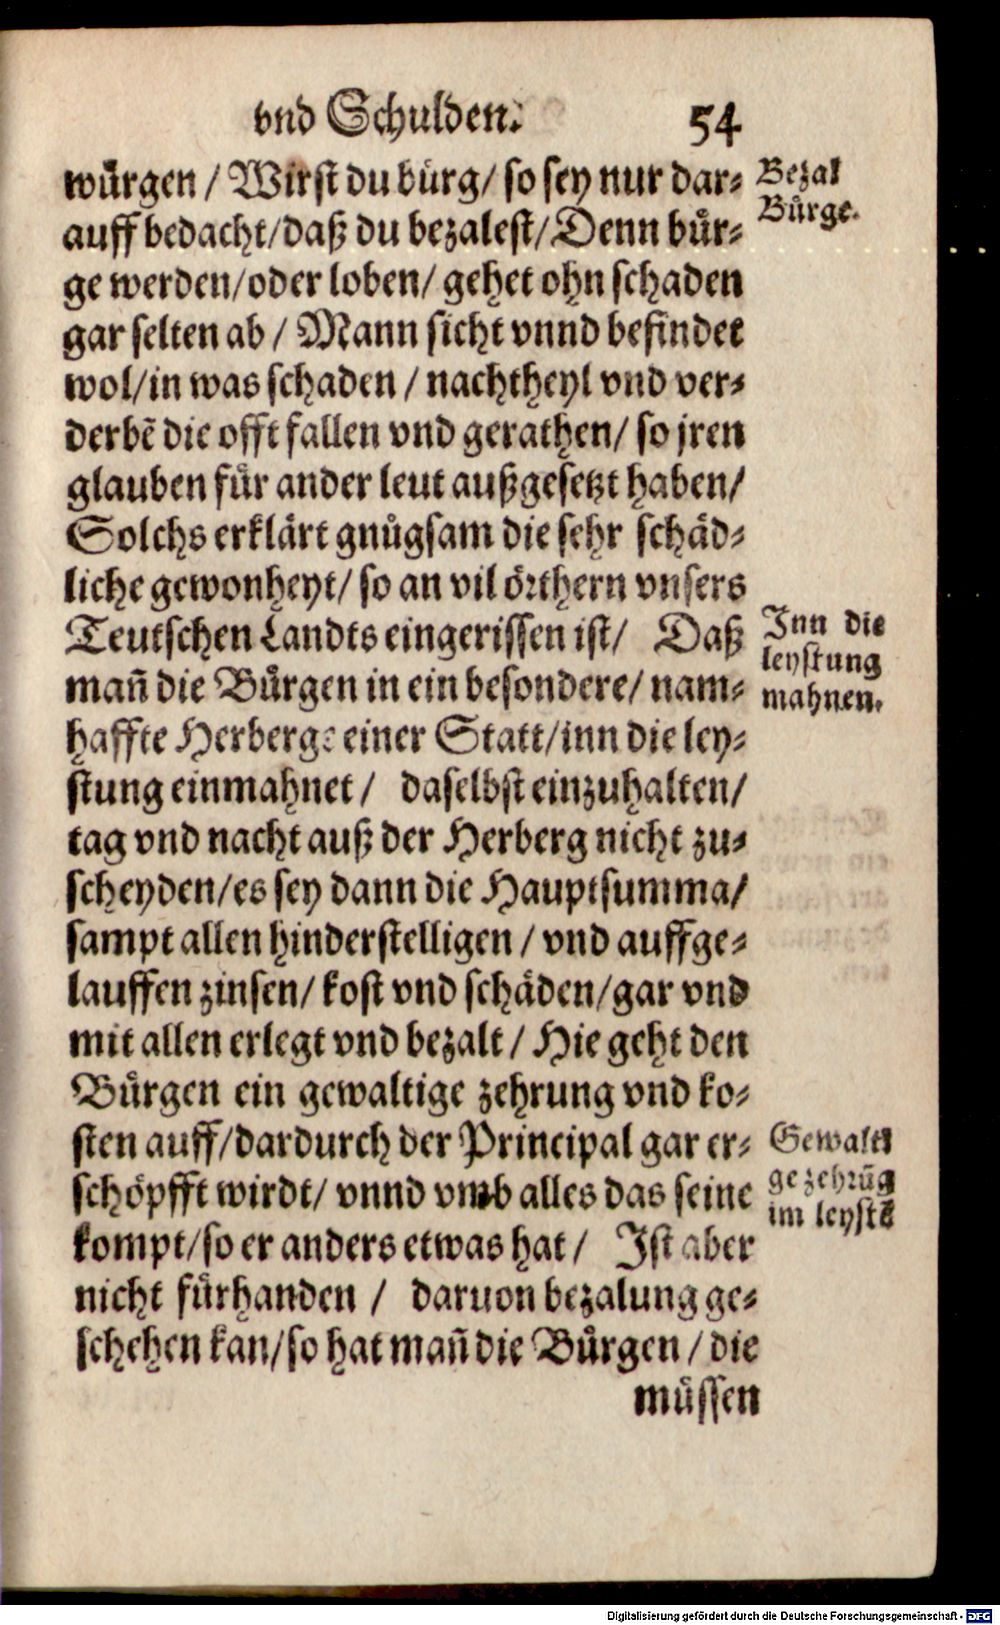 vnd Schulden. 54
wuͤrgen / Wirst du buͤrg / so sey nur dar⸗
auff bedacht / daß du bezalest / Denn buͤr⸗
ge werden / oder loben / gehet ohn schaden
gar selten ab / Mann sicht vnnd befindet
wol / in was schaden / nachtheyl vnd ver⸗
derbē die offt fallen vnd gerathen / so jren
glauben fuͤr ander leut außgesetzt haben /
Solchs erklaͤrt gnuͤgsam die sehr schaͤd⸗
liche gewonheyt / so an vil oͤrthern vnsers
Teutschen Landts eingerissen ist / Daß
mañ die Buͤrgen in ein besondere / nam⸗
haffte Herberge einer Statt / inn die ley⸗
stung einmahnet / daselbst einzuhalten /
tag vnd nacht auß der Herberg nicht zu⸗
scheyden / es sey dann die Hauptsumma /
sampt allen hinderstelligen / vnd auffge⸗
lauffen zinsen / kost vnd schaͤden / gar vnd
mit allen erlegt vnd bezalt / Hie geht den
Buͤrgen ein gewaltige zehrung vnd ko⸗
sten auff / dardurch der Principal gar er⸗
schoͤpfft wirdt / vnnd vmb alles das seine
kompt / so er anders etwas hat / Ist aber
nicht fuͤrhanden / daruon bezalung ge⸗
schehen kan / so hat mañ die Buͤrgen / die
muͤssen
Bezal
Buͤrge.
Inn die
leystung
mahnen.
Gewalti
ge zehrūg
im leystē
Digitalisierung gefördert durch die Deutsche Forschungsgemeinschaft - DFG